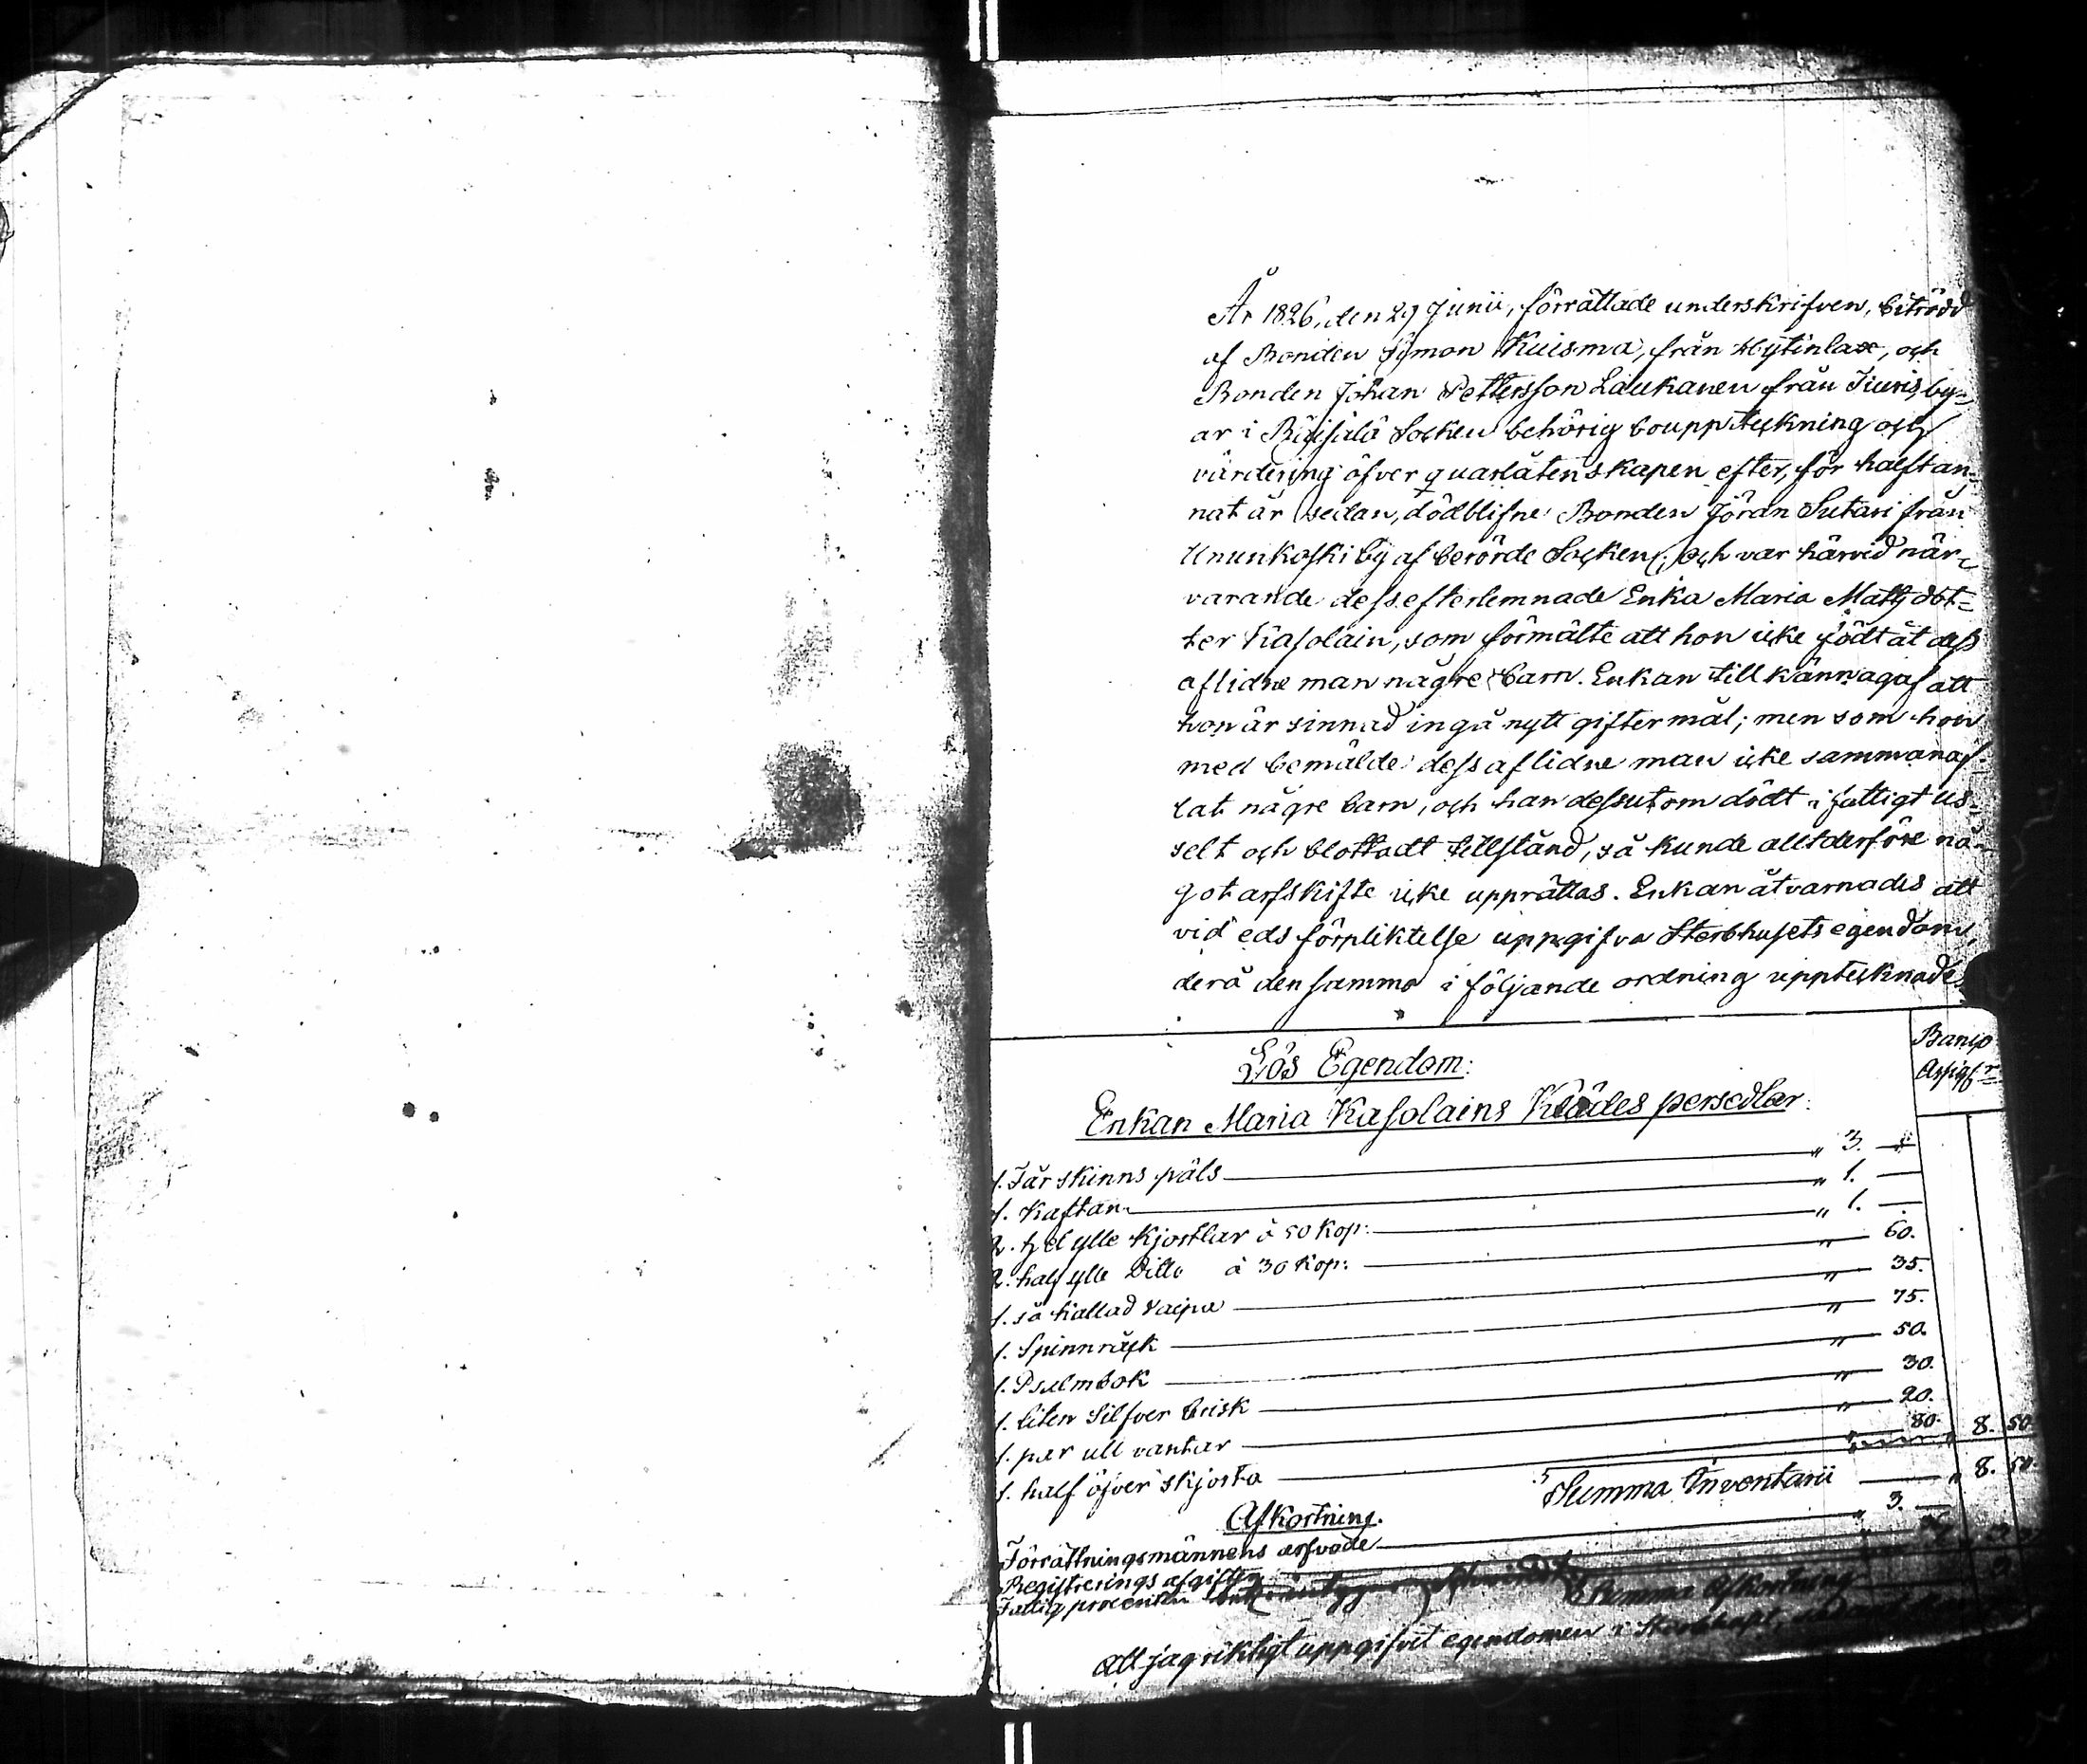 År 1826, den 29 Junii, förrättade underskrifven, biträdd
af Bonden Simon Kuisma, från Hytinlax, och
Bonden Johan Pettersson Laukanen från Tiuris by-
ar i Räisälä Socken behörig bouppteckning och
värdering öfver quarlåtenskapen efter, för halftan-
nat år sedan, dödblifne Bonden Jöran Sutari från
Ununkoski by af berörde Socken; och var härvid när-
varande dess efterlemnade Enka Maria Matts dot-
ter Kasolain, som förmälte att hon icke födt åt dess
aflidne man några barn. Enkan tillkännagaf att
hon är sinnad ingå nytt giftermål; men som hon
med bemälde dess aflidne man icke sammanaf-
lat några barn, och han dessutom dödt i fattigt us-
selt och blottadt tillstånd, så kunde alltderföre nå-
got arfskifte icke upprättas. Enkan åtvarnades att
vid eds förpliktelse uppgifva Sterbhusets egendom,
derå den samma i följande ordning upptecknades
Banco
Lös Egendom: Assigr
Enkan Maria Kasolains Klädes persedlar:
1. Fårskinns päls „ 3. „
1. Kaftan „ 1. —
2. helylle Kjortlar à 50 Kop: „ 1. —
2. half ylle Ditto à 30 Kop: „ 60.
1. så kallad vaipa „ 35.
1. Spinnråck „ 75.
1. Psalmbok „ 50.
1. liten Silfver brisk „ 30.
1. par ull vantar „ 20.
1. half öfver skjorta 80. 8. 50.
Summa Inventarii „ 8. 50.
Afkortning.
Förrättningsmännens arfvode „ 3. —
Registrerings afgiften
Fattig procenten Summa Afkortning
Att jag riktigt uppgifvit egendomen i